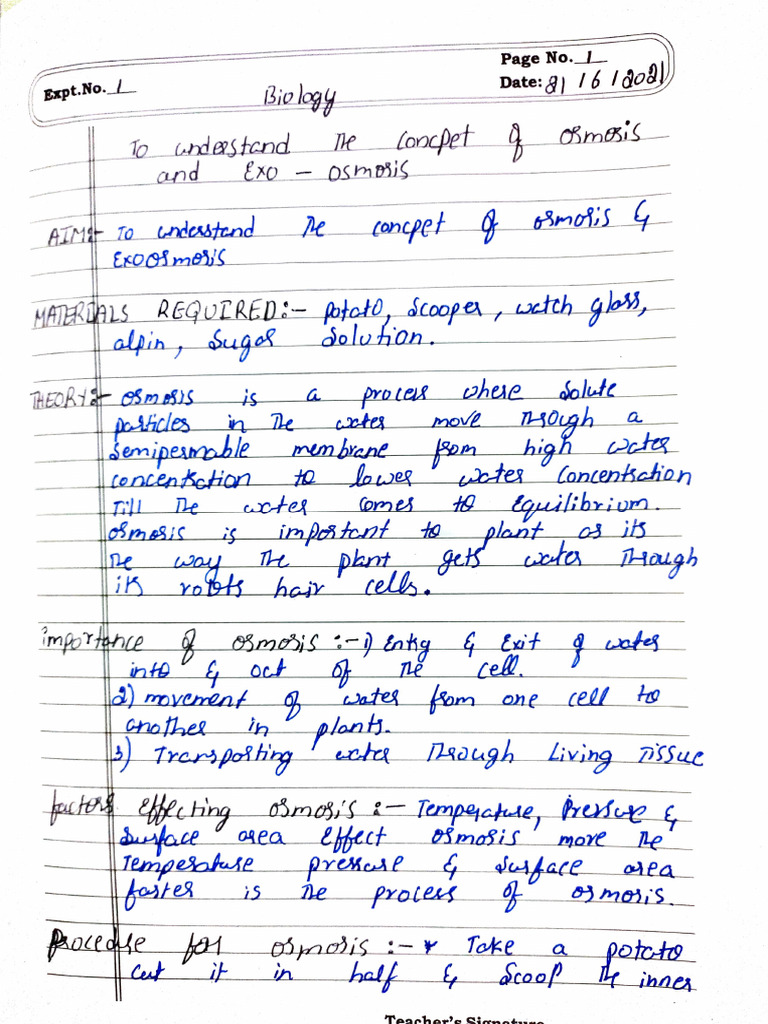 Page No. 1
Expt.No. 1
Date: 21/6/2021
Biology
To understand the concpet of osmosis
and Exo - osmosis
AIM:- To understand the concpet of osmosis &
Exoosmosis
MATERIALS REQUIRED:- potato, scooper, watch glass,
alpin, sugar solution.
THEORY:- osmosis is a process where solute
particles in the water move through a
semipermable membrane from high water
concentration to lower water concentration
Till the water comes to equilibrium.
osmosis is important to plant as its
the way the plant gets water through
its roots hair cells.
importance of osmosis :- 1) Entry & Exit of water
into & out of the cell.
2) movement of water from one cell to
another in plants.
3) Transporting water through living tissue
factors effecting osmosis :- Temperature, pressure &
surface area effect osmosis more the
temperature pressure & surface area
faster is the process of osmosis.
procedure for osmosis :- * Take a potato
cut it in half & scoop the inner
Teacher's Signature